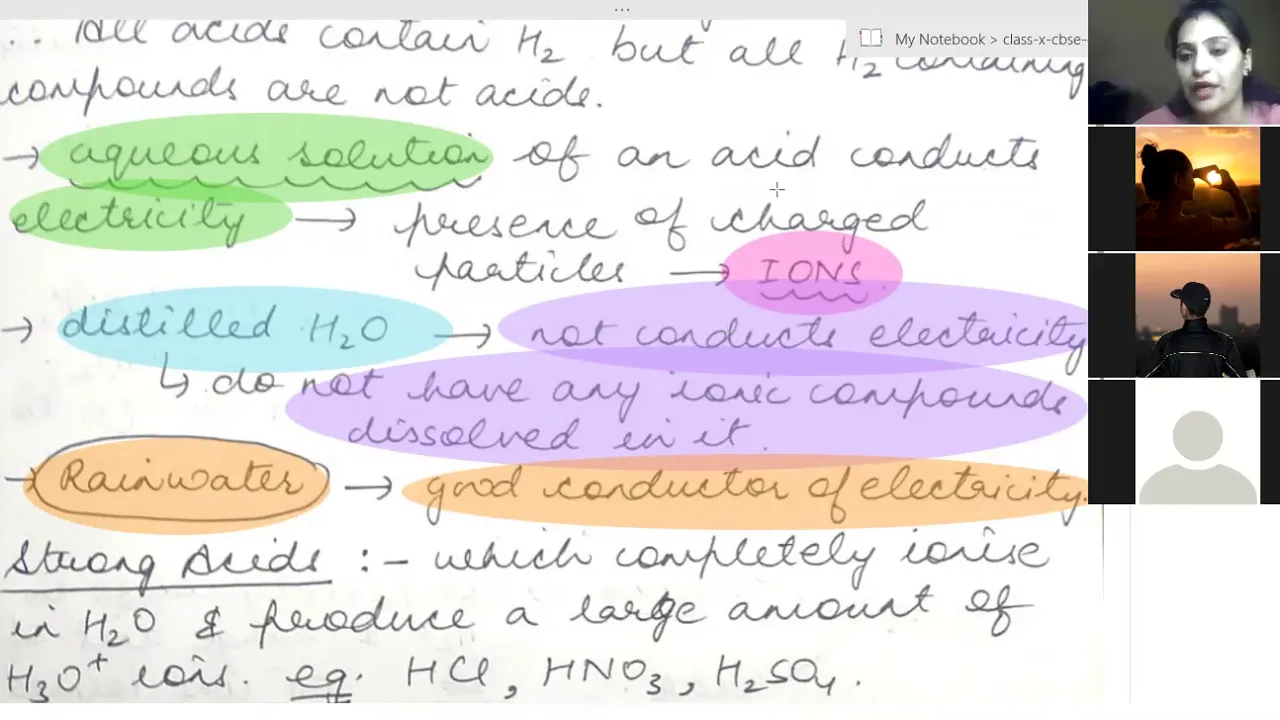 ...
My Notebook > class-x-cbse-
∴ All acids contain H₂ but all H₂ containing
compounds are not acids.
→ aqueous solution of an acid conducts
electricity → presence of charged
particles → IONS
→ distilled H₂O → not conducts electricity
↳ do not have any ionic compounds
dissolved in it.
→ Rainwater → good conductor of electricity.
Strong Acids :- which completely ionise
in H₂O & produce a large amount of
H₃O⁺ ions. eg. HCl, HNO₃, H₂SO₄.